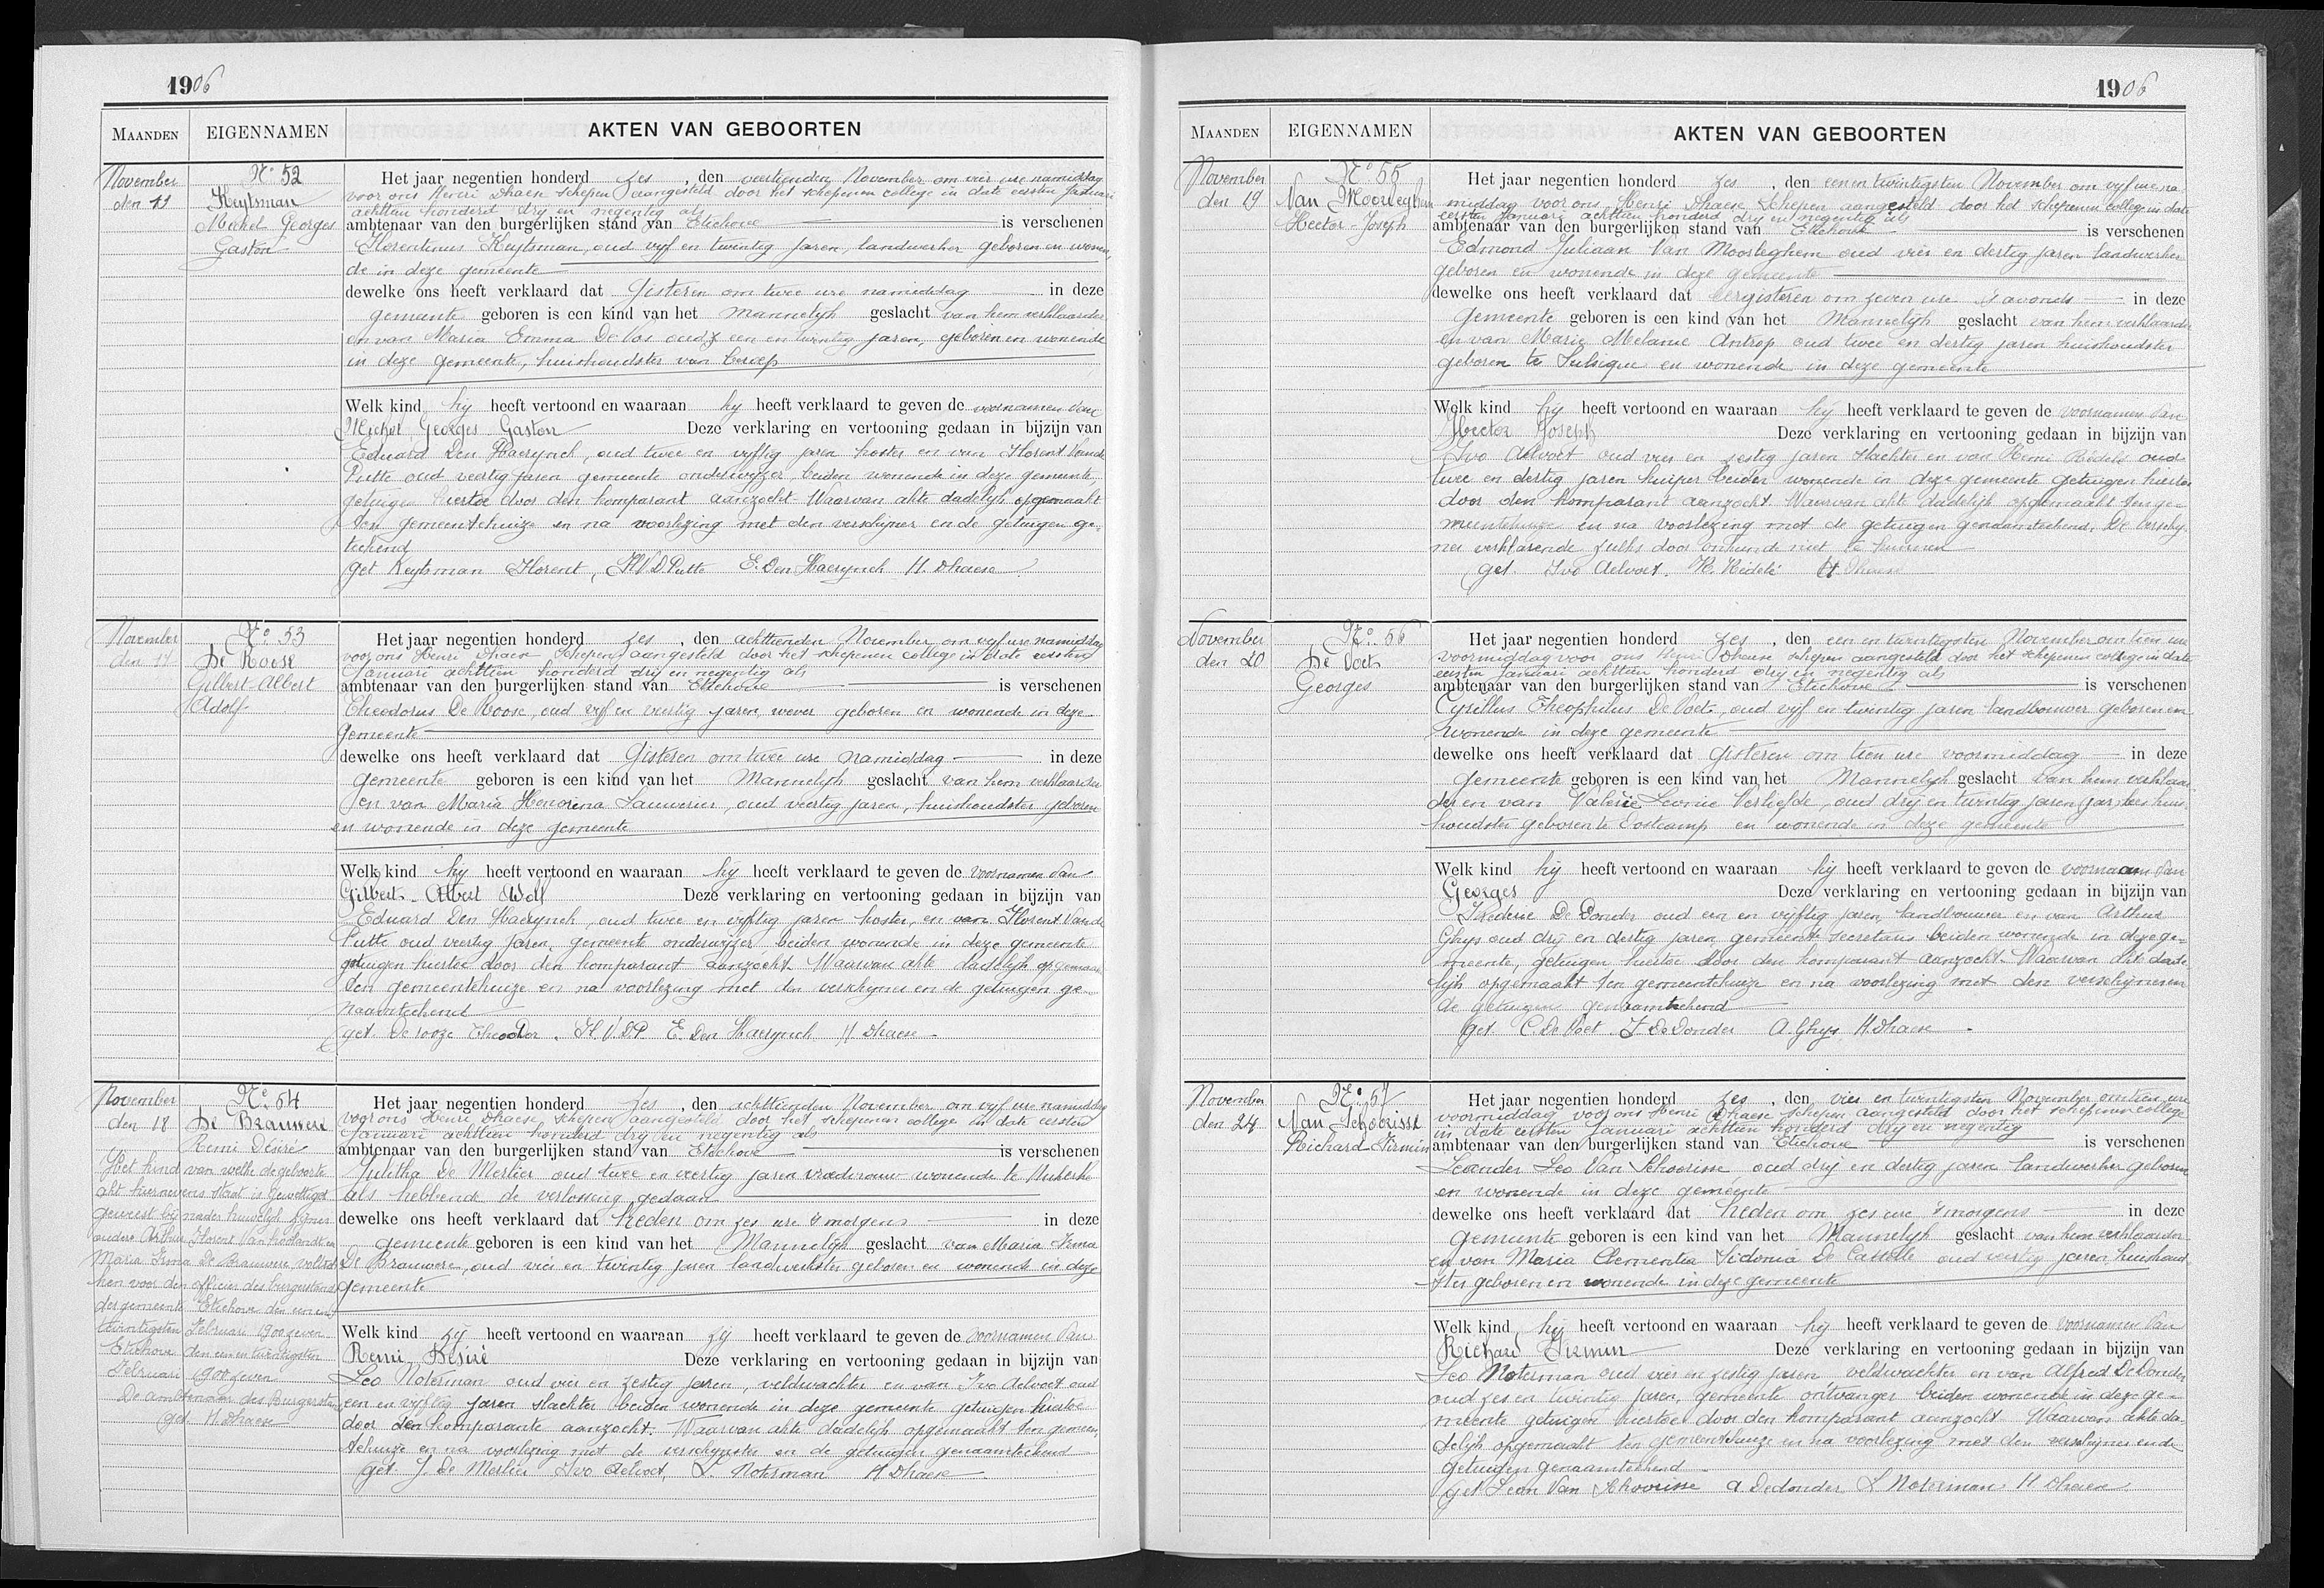 1906
MAANDEN EIGENNAMEN AKTEN VAN GEBOORTEN
November
den 11
N° 52
Keytsman
Michel Georges
Gaston
Het jaar negentien honderd zes, den veertienden November om vier ure namiddag
voor ons Henri Dhaese schepen aangesteld door het schepenen college in date eersten Januari
achttien honderd drij en negentig als
ambtenaar van den burgerlijken stand van Etichove is verschenen
Florentinus Keytsman, oud vijf en twintig jaren, landwerker geboren en wonen
de in deze gemeente
dewelke ons heeft verklaard dat Gisteren om twee ure namiddag in deze
gemeente geboren is een kind van het Mannelijk geslacht van hem verklaarder
en van Maria Emma De Vos oud een en twintig jaren, geboren en wonende
in deze gemeente, huishoudster van beroep
Welk kind hij heeft vertoond en waaraan hij heeft verklaard te geven de voornamen van
Michel Georges Gaston Deze verklaring en vertooning gedaan in bijzijn van
Eduard Den Haerynck, oud twee en vijftig jaren koster en van Florent Vande
Putte oud veertig jaren gemeente onderwijzer, beiden wonende in deze gemeente,
getuigen hiertoe door den komparant aanzocht. Waarvan akte dadelijk opgemaakt
ten gemeentehuize en na voorlezing met den verschijner en de getuigen ge-
teekend
get Keytsman Florent, Fl V D Putte E. Den Haerynck H. Dhaese
November
den 17
N° 53
De Roose
Gilbert Albert
Adolf
Het jaar negentien honderd zes, den achttienden November om vijf ure namiddag
voor ons Henri Dhaese schepen aangesteld door het schepenen college in date eersten
Januari achttien honderd drij en negentig als
ambtenaar van den burgerlijken stand van Etichove is verschenen
Theodorus De Roose, oud vijf en veertig jaren, wever geboren en wonende in deze
gemeente
dewelke ons heeft verklaard dat Gisteren om twee ure namiddag in deze
gemeente geboren is een kind van het Mannelijk geslacht van hem verklaarder
en van Maria Honorina Sauverier, oud veertig jaren, huishoudster geboren
en wonende in deze gemeente
Welk kind hij heeft vertoond en waaraan hij heeft verklaard te geven de voornamen van
Gilbert Albert Adolf Deze verklaring en vertooning gedaan in bijzijn van
Eduard Den Haerynck, oud twee en vijftig jaren koster, en van Florent Vande
Putte oud veertig jaren, gemeente onderwijzer beiden wonende in deze gemeente
getuigen hiertoe door den komparant aanzocht. Waarvan akte dadelijk opgemaakt
ten gemeentehuize en na voorlezing met den verschijner en de getuigen ge
naamteekend
get. De rooze Theodor. Fl. V. D P E. Den Haerynck H Dhaese
November
den 18
N° 54
De Brauwere
Remi Désiré
Het kind van welk de geboorte
akt hiernevens staat is gewettigd
geweest bij nader huwelijk zijner
ouders Arthur Florent Van
Maria Irma De Brauwere, voltrok
ken voor den officier des burgerstands
der gemeente Etichove den een en
twintigsten Februari 1900 zeven
Etichove den een en twintigsten
Februari 1900 zeven
De ambtenaar des Burgerstands
get H Dhaese
Het jaar negentien honderd zes, den achttienden November om vijf ure namiddag
voor ons Henri Dhaese schepen aangesteld door het schepenen college in date eersten
Januari achttien honderd drij en negentig als
ambtenaar van den burgerlijken stand van Etichove is verschenen
Julitha De Merlier oud twee en veertig jaren vroedvrouw wonende te Nukerke
als hebbende de verlossing gedaan
dewelke ons heeft verklaard dat heden om zes ure 's morgens in deze
gemeente geboren is een kind van het Mannelijk geslacht van Maria Irma
De Brauwere, oud vier en twintig jaren landwerkster geboren en wonende in deze
gemeente
Welk kind zij heeft vertoond en waaraan zij heeft verklaard te geven de voornamen van
Remi Desiré Deze verklaring en vertooning gedaan in bijzijn van
Leo Noterman oud vier en zestig jaren, veldwachter en van Ivo Aelvoet oud
een en vijftig jaren slachter beiden wonende in deze gemeente getuigen hiertoe
door den komparante aanzocht. Waarvan akte dadelijk opgemaakt ten gemeen
tehuize en na voorlezing met de verschijnster en de getuigen genaamteekend
get. J. De Merlier Ivo Aelvoet, L. Noterman H Dhaese
1906
MAANDEN EIGENNAMEN AKTEN VAN GEBOORTEN
November
den 19
N° 55
Van Moorleghem
Hector-Joseph
Het jaar negentien honderd zes, den een en twintigsten November om vijf ure na
middag voor ons Henri Dhaese Schepen aangesteld door het schepenen college in date
eersten Januari achttien honderd drij en negentig als
ambtenaar van den burgerlijken stand van Etichove is verschenen
Edmond Juliaan Van Moorleghem oud vier en dertig jaren landwerker
geboren en wonende in deze gemeente
dewelke ons heeft verklaard dat eergisteren om zeven ure 's avonds in deze
gemeente geboren is een kind van het Mannelijk geslacht van hem verklaarder
en van Marie Melanie Antrop oud twee en dertig jaren huishoudster
geboren te Sulsique en wonende in deze gemeente
Welk kind hij heeft vertoond en waaraan hij heeft verklaard te geven de voornamen van
Hector Joseph Deze verklaring en vertooning gedaan in bijzijn van
Ivo Aelvoet oud vier en zestig jaren slachter en van Remi Rédelé oud
twee en dertig jaren kuiper beiden wonende in deze gemeente getuigen hiertoe
door den komparant aanzocht. Waarvan akte dadelijk opgemaakt ten ge-
meentehuize en na voorlezing met de getuigen genaamteekend. De verschij-
ner verklarende zulks door onkunde niet te kunnen
get. Ivo Aelvoet. R. Rédelé H Dhaese
November
den 20
N° 56
De Voet
Georges
Het jaar negentien honderd zes, den een en twintigsten November om tien ure
voormiddag voor ons Henri Dhaese schepen aangesteld door het schepenen college in date
eersten Januari achttien honderd drij en negentig als
ambtenaar van den burgerlijken stand van Etichove is verschenen
Cyrillus Theophilus De Voet, oud vijf en twintig jaren landbouwer geboren en
wonende in deze gemeente
dewelke ons heeft verklaard dat Gisteren om tien ure voormiddag in deze
gemeente geboren is een kind van het Mannelijk geslacht van hem verklaar-
der en van Valerie Leonie Verliefde, oud drij en twintig jaren huis
houdster geboren te Oostcamp en wonende in deze gemeente
Welk kind hij heeft vertoond en waaraan hij heeft verklaard te geven de voornaam van
Georges Deze verklaring en vertooning gedaan in bijzijn van
Frederic De Donder oud een en vijftig jaren, landbouwer en van Arthur
Ghys oud drij en dertig jaren gemeente secretaris beiden wonende in deze ge-
meente, getuigen hiertoe door den komparant aanzocht. Waarvan akte dade-
lijk opgemaakt ten gemeentehuize en na voorlezing met den verschijner en
de getuigen genaamteekend
get C. De Voet F De Donder A. Ghys H. Dhaese
November
den 24
N° 57
Van Schoorisse
Richard Firmin
Het jaar negentien honderd zes, den vier en twintigsten November om tien ure
voormiddag voor ons Henri Dhaese schepen aangesteld door het schepenen college
in date eersten Januari achttien honderd drij en negentig
ambtenaar van den burgerlijken stand van Etichove is verschenen
Leander Leo Van Schoorisse oud drij en dertig jaren landwerker geboren
en wonende in deze gemeente
dewelke ons heeft verklaard dat heden om zes ure 's morgens in deze
gemeente geboren is een kind van het Mannelijk geslacht van hem verklaarder
en van Maria Clementia Sidonia De oud veertig jaren, huishoud
ster geboren en wonende in deze gemeente
Welk kind hij heeft vertoond en waaraan hij heeft verklaard te geven de voornamen van
Richard Firmin Deze verklaring en vertooning gedaan in bijzijn van
Leo Noterman oud vier en zestig jaren veldwachter en van Alfred De Donder
oud zes en twintig jaren, gemeente ontvanger beiden wonende in deze ge-
meente getuigen hiertoe door den komparant aanzocht. Waarvan akte da-
delijk opgemaakt ten gemeentehuize en na voorlezing met den verschijner en de
getuigen genaamteekend
get Leon Van Schoorisse A Dedonder L Noterman H Dhaese